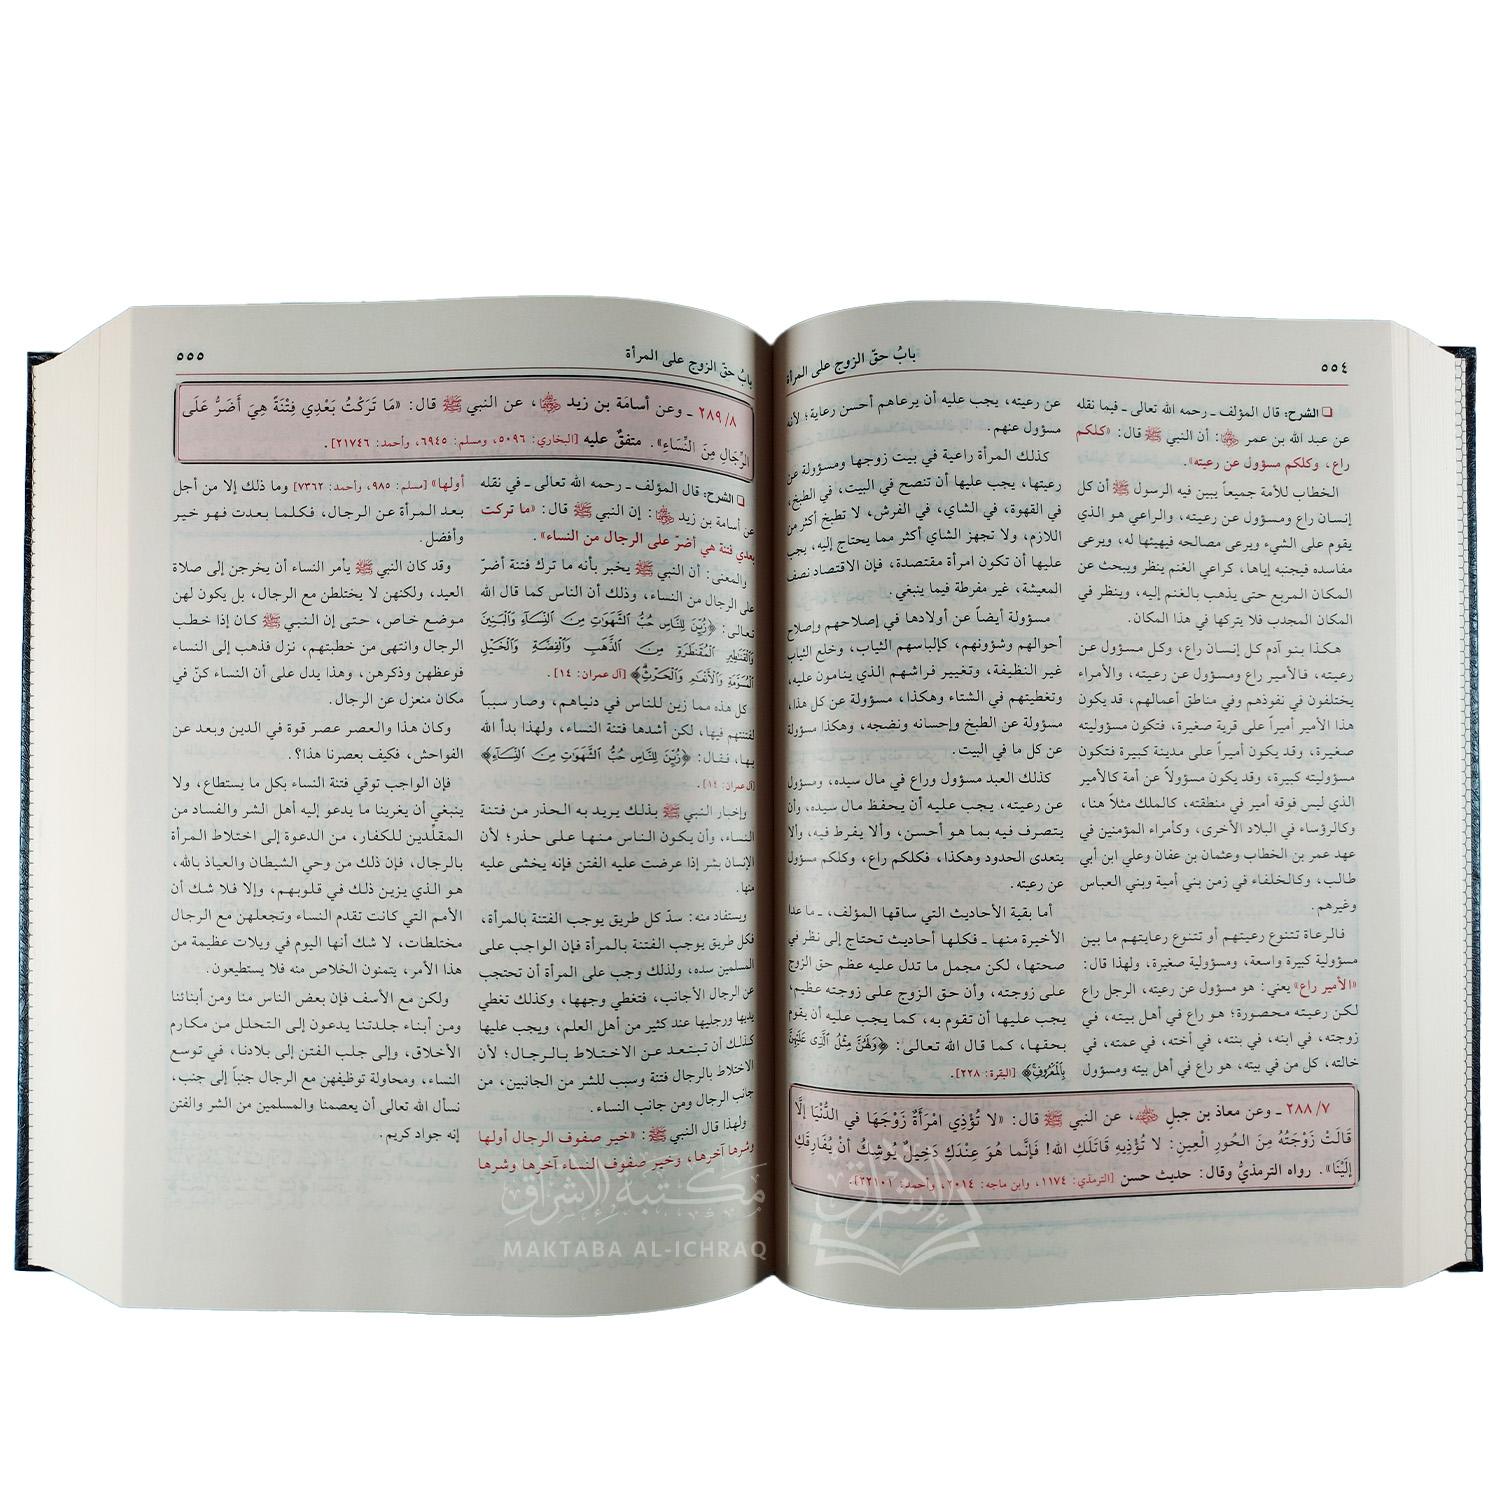 ٥٥٤
بابُ حقّ الزوج على المرأة
❑ الشرح: قال المؤلف ـ رحمه الله تعالى ـ فيما نقله
عن عبد الله بن عمر رضي الله عنهما: أن النبي ﷺ قال: «كلكم
راع، وكلكم مسؤول عن رعيته».
الخطاب للأمة جميعاً يبين فيه الرسول ﷺ أن كل
إنسان راع ومسؤول عن رعيته، والراعي هو الذي
يقوم على الشيء ويرعى مصالحه فيهيئها له، ويرعى
مفاسده فيجنبه إياها، كراعي الغنم ينظر ويبحث عن
المكان المربع حتى يذهب بالغنم إليه، وينظر في
المكان المجدب فلا يتركها في هذا المكان.
هكذا بنو آدم كل إنسان راع، وكل مسؤول عن
رعيته، فالأمير راع ومسؤول عن رعيته، والأمراء
يختلفون في نفوذهم وفي مناطق أعمالهم، قد يكون
هذا الأمير أميراً على قرية صغيرة، فتكون مسؤوليته
صغيرة، وقد يكون أميراً على مدينة كبيرة فتكون
مسؤوليته كبيرة، وقد يكون مسؤولاً عن أمة كالأمير
الذي ليس فوقه أمير في منطقته، كالملك مثلاً هنا،
وكالرؤساء في البلاد الأخرى، وكأمراء المؤمنين في
عهد عمر بن الخطاب وعثمان بن عفان وعلي ابن أبي
طالب، وكالخلفاء في زمن بني أمية وبني العباس
وغيرهم.
فالرعاة تتنوع رعيتهم أو تتنوع رعايتهم ما بين
مسؤولية كبيرة واسعة، ومسؤولية صغيرة، ولهذا قال:
«الأمير راع» يعني: هو مسؤول عن رعيته، الرجل راع
لكن رعيته محصورة؛ هو راع في أهل بيته، في
زوجته، في ابنه، في بنته، في أخته، في عمته، في
خالته، كل من في بيته، هو راع في أهل بيته ومسؤول
عن رعيته، يجب عليه أن يرعاهم أحسن رعاية؛ لأنه
مسؤول عنهم.
كذلك المرأة راعية في بيت زوجها ومسؤولة عن
رعيتها، يجب عليها أن تنصح في البيت، في الطبخ،
في القهوة، في الشاي، في الفرش، لا تطبخ أكثر من
اللازم، ولا تجهز الشاي أكثر مما يحتاج إليه، يجب
عليها أن تكون امرأة مقتصدة، فإن الاقتصاد نصف
المعيشة، غير مفرطة فيما ينبغي.
مسؤولة أيضاً عن أولادها في إصلاحهم وإصلاح
أحوالهم وشؤونهم، كإلباسهم الثياب، وخلع الثياب
غير النظيفة، وتغيير فراشهم الذي ينامون عليه،
وتغطيتهم في الشتاء وهكذا، مسؤولة عن كل هذا،
مسؤولة عن الطبخ وإحسانه ونضجه، وهكذا مسؤولة
عن كل ما في البيت.
كذلك العبد مسؤول وراع في مال سيده، ومسؤول
عن رعيته، يجب عليه أن يحفظ مال سيده، وأن
يتصرف فيه بما هو أحسن، وألا يفرط فيه، وألا
يتعدى الحدود وهكذا، فكلكم راع، وكلكم مسؤول
عن رعيته.
أما بقية الأحاديث التي ساقها المؤلف، ـ ما عدا
الأخيرة منها ـ فكلها أحاديث تحتاج إلى نظر في
صحتها، لكن مجمل ما تدل عليه عظم حق الزوج
على زوجته، وأن حق الزوج على زوجته عظيم،
يجب عليها أن تقوم به، كما يجب عليه أن يقوم
بحقها، كما قال الله تعالى: ﴿وَلَهُنَّ مِثْلُ الَّذِي عَلَيْهِنَّ
بِالْمَعْرُوفِ﴾ [البقرة: ٢٢٨].
٢٨٨/٧ ـ وعن معاذ بن جبلٍ رضي الله عنه، عن النبي ﷺ قال: «لا تُؤْذِي امْرَأَةٌ زَوْجَهَا في الدُّنْيَا إلَّا
قَالَتْ زَوْجَتُهُ مِنَ الحُورِ الْعِينِ: لا تُؤْذِيهِ قَاتَلَكِ الله! فَإِنَّما هُوَ عِنْدَكِ دَخِيلٌ يُوشِكُ أنْ يُفَارِقَكِ
إلَيْنَا». رواه الترمذيُّ وقال: حديث حسن [الترمذي: ١١٧٤، وابن ماجه: ٢٠١٤، وأحمد: ٢٢١٠١].
بابُ حقّ الزوج على المرأة
٥٥٥
٢٨٩/٨ ـ وعن أسامَة بن زيد رضي الله عنهما، عن النبي ﷺ قال: «مَا تَرَكْتُ بَعْدِي فِتْنَةً هِيَ أَضَرُّ عَلَى
الرِّجَالِ مِنَ النِّسَاءِ». متفقٌ عليه [البخاري: ٥٠٩٦، ومسلم: ٦٩٤٥، وأحمد: ٢١٧٤٦].
❑ الشرح: قال المؤلف ـ رحمه الله تعالى ـ في نقله
عن أسامة بن زيد رضي الله عنهما: إن النبي ﷺ قال: «ما تركت
بعدي فتنة هي أضرّ على الرجال من النساء».
والمعنى: أن النبي ﷺ يخبر بأنه ما ترك فتنة أضرّ
على الرجال من النساء، وذلك أن الناس كما قال الله
تعالى: ﴿زُيِّنَ لِلنَّاسِ حُبُّ الشَّهَوَاتِ مِنَ النِّسَاءِ وَالْبَنِينَ
وَالْقَنَاطِيرِ الْمُقَنطَرَةِ مِنَ الذَّهَبِ وَالْفِضَّةِ وَالْخَيْلِ
الْمُسَوَّمَةِ وَالْأَنْعَامِ وَالْحَرْثِ﴾ [آل عمران: ١٤].
كل هذه مما زين للناس في دنياهم، وصار سبباً
لفتنتهم فيها، لكن أشدها فتنة النساء، ولهذا بدأ الله
بها، فقال: ﴿زُيِّنَ لِلنَّاسِ حُبُّ الشَّهَوَاتِ مِنَ النِّسَاءِ﴾
[آل عمران: ١٤].
وإخبار النبي ﷺ بذلك يريد به الحذر من فتنة
النساء، وأن يكون الناس منها على حذر؛ لأن
الإنسان بشر إذا عرضت عليه الفتن فإنه يخشى عليه
منها.
ويستفاد منه: سدّ كل طريق يوجب الفتنة بالمرأة،
فكل طريق يوجب الفتنة بالمرأة فإن الواجب على
المسلمين سده، ولذلك وجب على المرأة أن تحتجب
عن الرجال الأجانب، فتغطي وجهها، وكذلك تغطي
يديها ورجليها عند كثير من أهل العلم، ويجب عليها
كذلك أن تبتعد عن الاختلاط بالرجال؛ لأن
الاختلاط بالرجال فتنة وسبب للشر من الجانبين، من
جانب الرجال ومن جانب النساء.
ولهذا قال النبي ﷺ: «خير صفوف الرجال أولها
وشرها آخرها، وخير صفوف النساء آخرها وشرها
أولها» [مسلم: ٩٨٥، وأحمد: ٧٣٦٢] وما ذلك إلا من أجل
بعد المرأة عن الرجال، فكلما بعدت فهو خير
وأفضل.
وقد كان النبي ﷺ يأمر النساء أن يخرجن إلى صلاة
العيد، ولكنهن لا يختلطن مع الرجال، بل يكون لهن
موضع خاص، حتى إن النبي ﷺ كان إذا خطب
الرجال وانتهى من خطبتهم، نزل فذهب إلى النساء
فوعظهن وذكرهن، وهذا يدل على أن النساء كنّ في
مكان منعزل عن الرجال.
وكان هذا والعصر عصر قوة في الدين وبعد عن
الفواحش، فكيف بعصرنا هذا؟.
فإن الواجب توقي فتنة النساء بكل ما يستطاع، ولا
ينبغي أن يغرينا ما يدعو إليه أهل الشر والفساد من
المقلّدين للكفار، من الدعوة إلى اختلاط المرأة
بالرجال، فإن ذلك من وحي الشيطان والعياذ بالله،
هو الذي يزين ذلك في قلوبهم، وإلا فلا شك أن
الأمم التي كانت تقدم النساء وتجعلهن مع الرجال
مختلطات، لا شك أنها اليوم في ويلات عظيمة من
هذا الأمر، يتمنون الخلاص منه فلا يستطيعون.
ولكن مع الأسف فإن بعض الناس منّا ومن أبنائنا
ومن أبناء جلدتنا يدعون إلى التحلل من مكارم
الأخلاق، وإلى جلب الفتن إلى بلادنا، في توسع
النساء، ومحاولة توظيفهن مع الرجال جنباً إلى جنب،
نسأل الله تعالى أن يعصمنا والمسلمين من الشر والفتن
إنه جواد كريم.
مكتبة الإشراق
MAKTABA AL-ICHRAQ
الإشراق